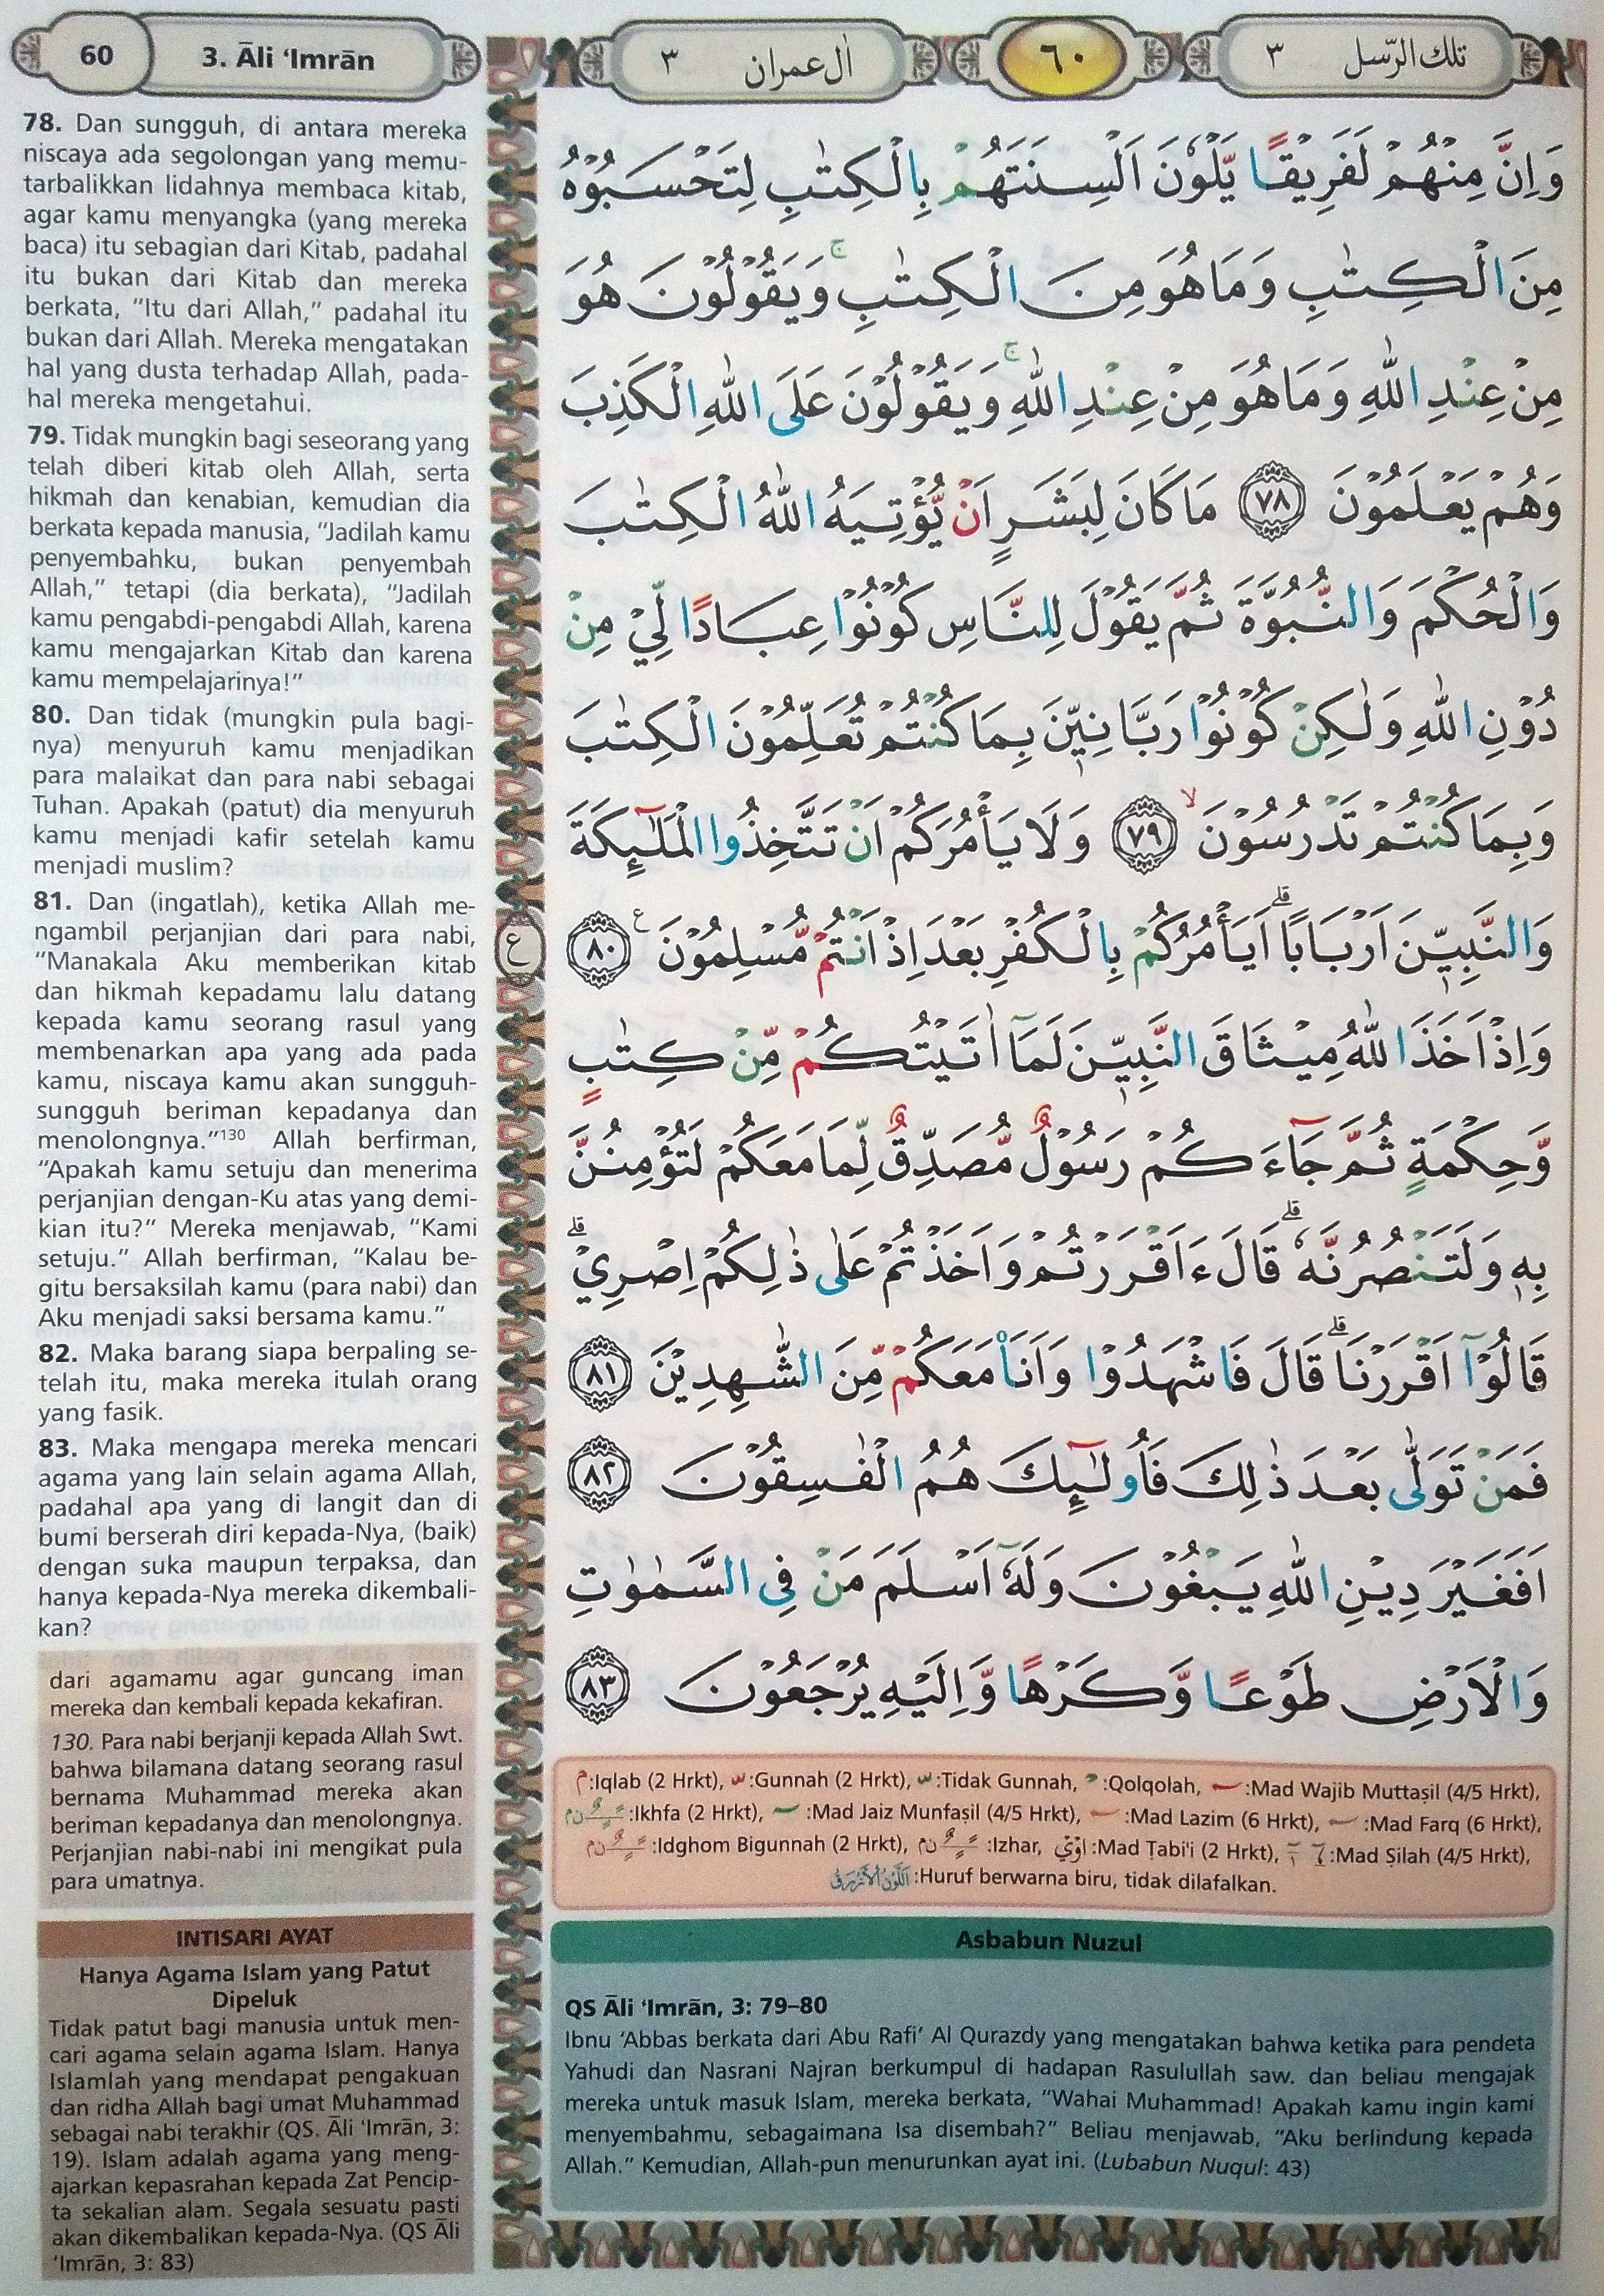 60
3. Āli ‘Imrān
اٰل عمران ٣
٦٠
تلك الرّسل ٣
78. Dan sungguh, di antara mereka
niscaya ada segolongan yang memu-
tarbalikkan lidahnya membaca kitab,
agar kamu menyangka (yang mereka
baca) itu sebagian dari Kitab, padahal
itu bukan dari Kitab dan mereka
berkata, “Itu dari Allah,” padahal itu
bukan dari Allah. Mereka mengatakan
hal yang dusta terhadap Allah, pada-
hal mereka mengetahui.
79. Tidak mungkin bagi seseorang yang
telah diberi kitab oleh Allah, serta
hikmah dan kenabian, kemudian dia
berkata kepada manusia, “Jadilah kamu
penyembahku, bukan penyembah
Allah,” tetapi (dia berkata), “Jadilah
kamu pengabdi-pengabdi Allah, karena
kamu mengajarkan Kitab dan karena
kamu mempelajarinya!”
80. Dan tidak (mungkin pula bagi-
nya) menyuruh kamu menjadikan
para malaikat dan para nabi sebagai
Tuhan. Apakah (patut) dia menyuruh
kamu menjadi kafir setelah kamu
menjadi muslim?
81. Dan (ingatlah), ketika Allah me-
ngambil perjanjian dari para nabi,
“Manakala Aku memberikan kitab
dan hikmah kepadamu lalu datang
kepada kamu seorang rasul yang
membenarkan apa yang ada pada
kamu, niscaya kamu akan sungguh-
sungguh beriman kepadanya dan
menolongnya.”130 Allah berfirman,
“Apakah kamu setuju dan menerima
perjanjian dengan-Ku atas yang demi-
kian itu?” Mereka menjawab, “Kami
setuju.” Allah berfirman, “Kalau be-
gitu bersaksilah kamu (para nabi) dan
Aku menjadi saksi bersama kamu.”
82. Maka barang siapa berpaling se-
telah itu, maka mereka itulah orang
yang fasik.
83. Maka mengapa mereka mencari
agama yang lain selain agama Allah,
padahal apa yang di langit dan di
bumi berserah diri kepada-Nya, (baik)
dengan suka maupun terpaksa, dan
hanya kepada-Nya mereka dikembali-
kan?
dari agamamu agar guncang iman
mereka dan kembali kepada kekafiran.
130. Para nabi berjanji kepada Allah Swt.
bahwa bilamana datang seorang rasul
bernama Muhammad mereka akan
beriman kepadanya dan menolongnya.
Perjanjian nabi-nabi ini mengikat pula
para umatnya.
INTISARI AYAT
Hanya Agama Islam yang Patut
Dipeluk
Tidak patut bagi manusia untuk men-
cari agama selain agama Islam. Hanya
Islamlah yang mendapat pengakuan
dan ridha Allah bagi umat Muhammad
sebagai nabi terakhir (QS. Āli ‘Imrān, 3:
19). Islam adalah agama yang meng-
ajarkan kepasrahan kepada Zat Pencip-
ta sekalian alam. Segala sesuatu pasti
akan dikembalikan kepada-Nya. (QS Āli
‘Imrān, 3: 83)
وَاِنَّ مِنْهُمْ لَفَرِيْقًا يَّلْوٗنَ اَلْسِنَتَهُمْ بِالْكِتٰبِ لِتَحْسَبُوْهُ
مِنَ الْكِتٰبِ وَمَا هُوَ مِنَ الْكِتٰبِۚ وَيَقُوْلُوْنَ هُوَ
مِنْ عِنْدِ اللّٰهِ وَمَا هُوَ مِنْ عِنْدِ اللّٰهِۚ وَيَقُوْلُوْنَ عَلَى اللّٰهِ الْكَذِبَ
وَهُمْ يَعْلَمُوْنَ ٧٨ مَا كَانَ لِبَشَرٍ اَنْ يُّؤْتِيَهُ اللّٰهُ الْكِتٰبَ
وَالْحُكْمَ وَالنُّبُوَّةَ ثُمَّ يَقُوْلَ لِلنَّاسِ كُوْنُوْا عِبَادًا لِّيْ مِنْ
دُوْنِ اللّٰهِ وَلٰكِنْ كُوْنُوْا رَبَّانِيّٖنَ بِمَا كُنْتُمْ تُعَلِّمُوْنَ الْكِتٰبَ
وَبِمَا كُنْتُمْ تَدْرُسُوْنَ ۙ ٧٩ وَلَا يَأْمُرَكُمْ اَنْ تَتَّخِذُوا الْمَلٰۤىِٕكَةَ
وَالنَّبِيّٖنَ اَرْبَابًاۗ اَيَأْمُرُكُمْ بِالْكُفْرِ بَعْدَ اِذْ اَنْتُمْ مُّسْلِمُوْنَ ع ٨٠
ع
وَاِذْ اَخَذَ اللّٰهُ مِيْثَاقَ النَّبِيّٖنَ لَمَآ اٰتَيْتُكُمْ مِّنْ كِتٰبٍ
وَّحِكْمَةٍ ثُمَّ جَاۤءَكُمْ رَسُوْلٌ مُّصَدِّقٌ لِّمَا مَعَكُمْ لَتُؤْمِنُنَّ
بِهٖ وَلَتَنْصُرُنَّهٗۗ قَالَ ءَاَقْرَرْتُمْ وَاَخَذْتُمْ عَلٰى ذٰلِكُمْ اِصْرِيْۗ
قَالُوْٓا اَقْرَرْنَاۗ قَالَ فَاشْهَدُوْا وَاَنَا۠ مَعَكُمْ مِّنَ الشّٰهِدِيْنَ ٨١
فَمَنْ تَوَلّٰى بَعْدَ ذٰلِكَ فَاُولٰۤىِٕكَ هُمُ الْفٰسِقُوْنَ ٨٢
اَفَغَيْرَ دِيْنِ اللّٰهِ يَبْغُوْنَ وَلَهٗٓ اَسْلَمَ مَنْ فِى السَّمٰوٰتِ
وَالْاَرْضِ طَوْعًا وَّكَرْهًا وَّاِلَيْهِ يُرْجَعُوْنَ ٨٣
م:Iqlab (2 Hrkt), :Gunnah (2 Hrkt), :Tidak Gunnah, :Qolqolah, :Mad Wajib Muttaṣil (4/5 Hrkt),
:Ikhfa (2 Hrkt), :Mad Jaiz Munfaṣil (4/5 Hrkt), :Mad Lazim (6 Hrkt), :Mad Farq (6 Hrkt),
:Idghom Bigunnah (2 Hrkt), :Izhar, :Mad Ṭabi'i (2 Hrkt), :Mad Ṣilah (4/5 Hrkt),
:Huruf berwarna biru, tidak dilafalkan.
Asbabun Nuzul
QS Āli ‘Imrān, 3: 79–80
Ibnu ‘Abbas berkata dari Abu Rafi’ Al Qurazdy yang mengatakan bahwa ketika para pendeta
Yahudi dan Nasrani Najran berkumpul di hadapan Rasulullah saw. dan beliau mengajak
mereka untuk masuk Islam, mereka berkata, “Wahai Muhammad! Apakah kamu ingin kami
menyembahmu, sebagaimana Isa disembah?” Beliau menjawab, “Aku berlindung kepada
Allah.” Kemudian, Allah-pun menurunkan ayat ini. (Lubabun Nuqul: 43)